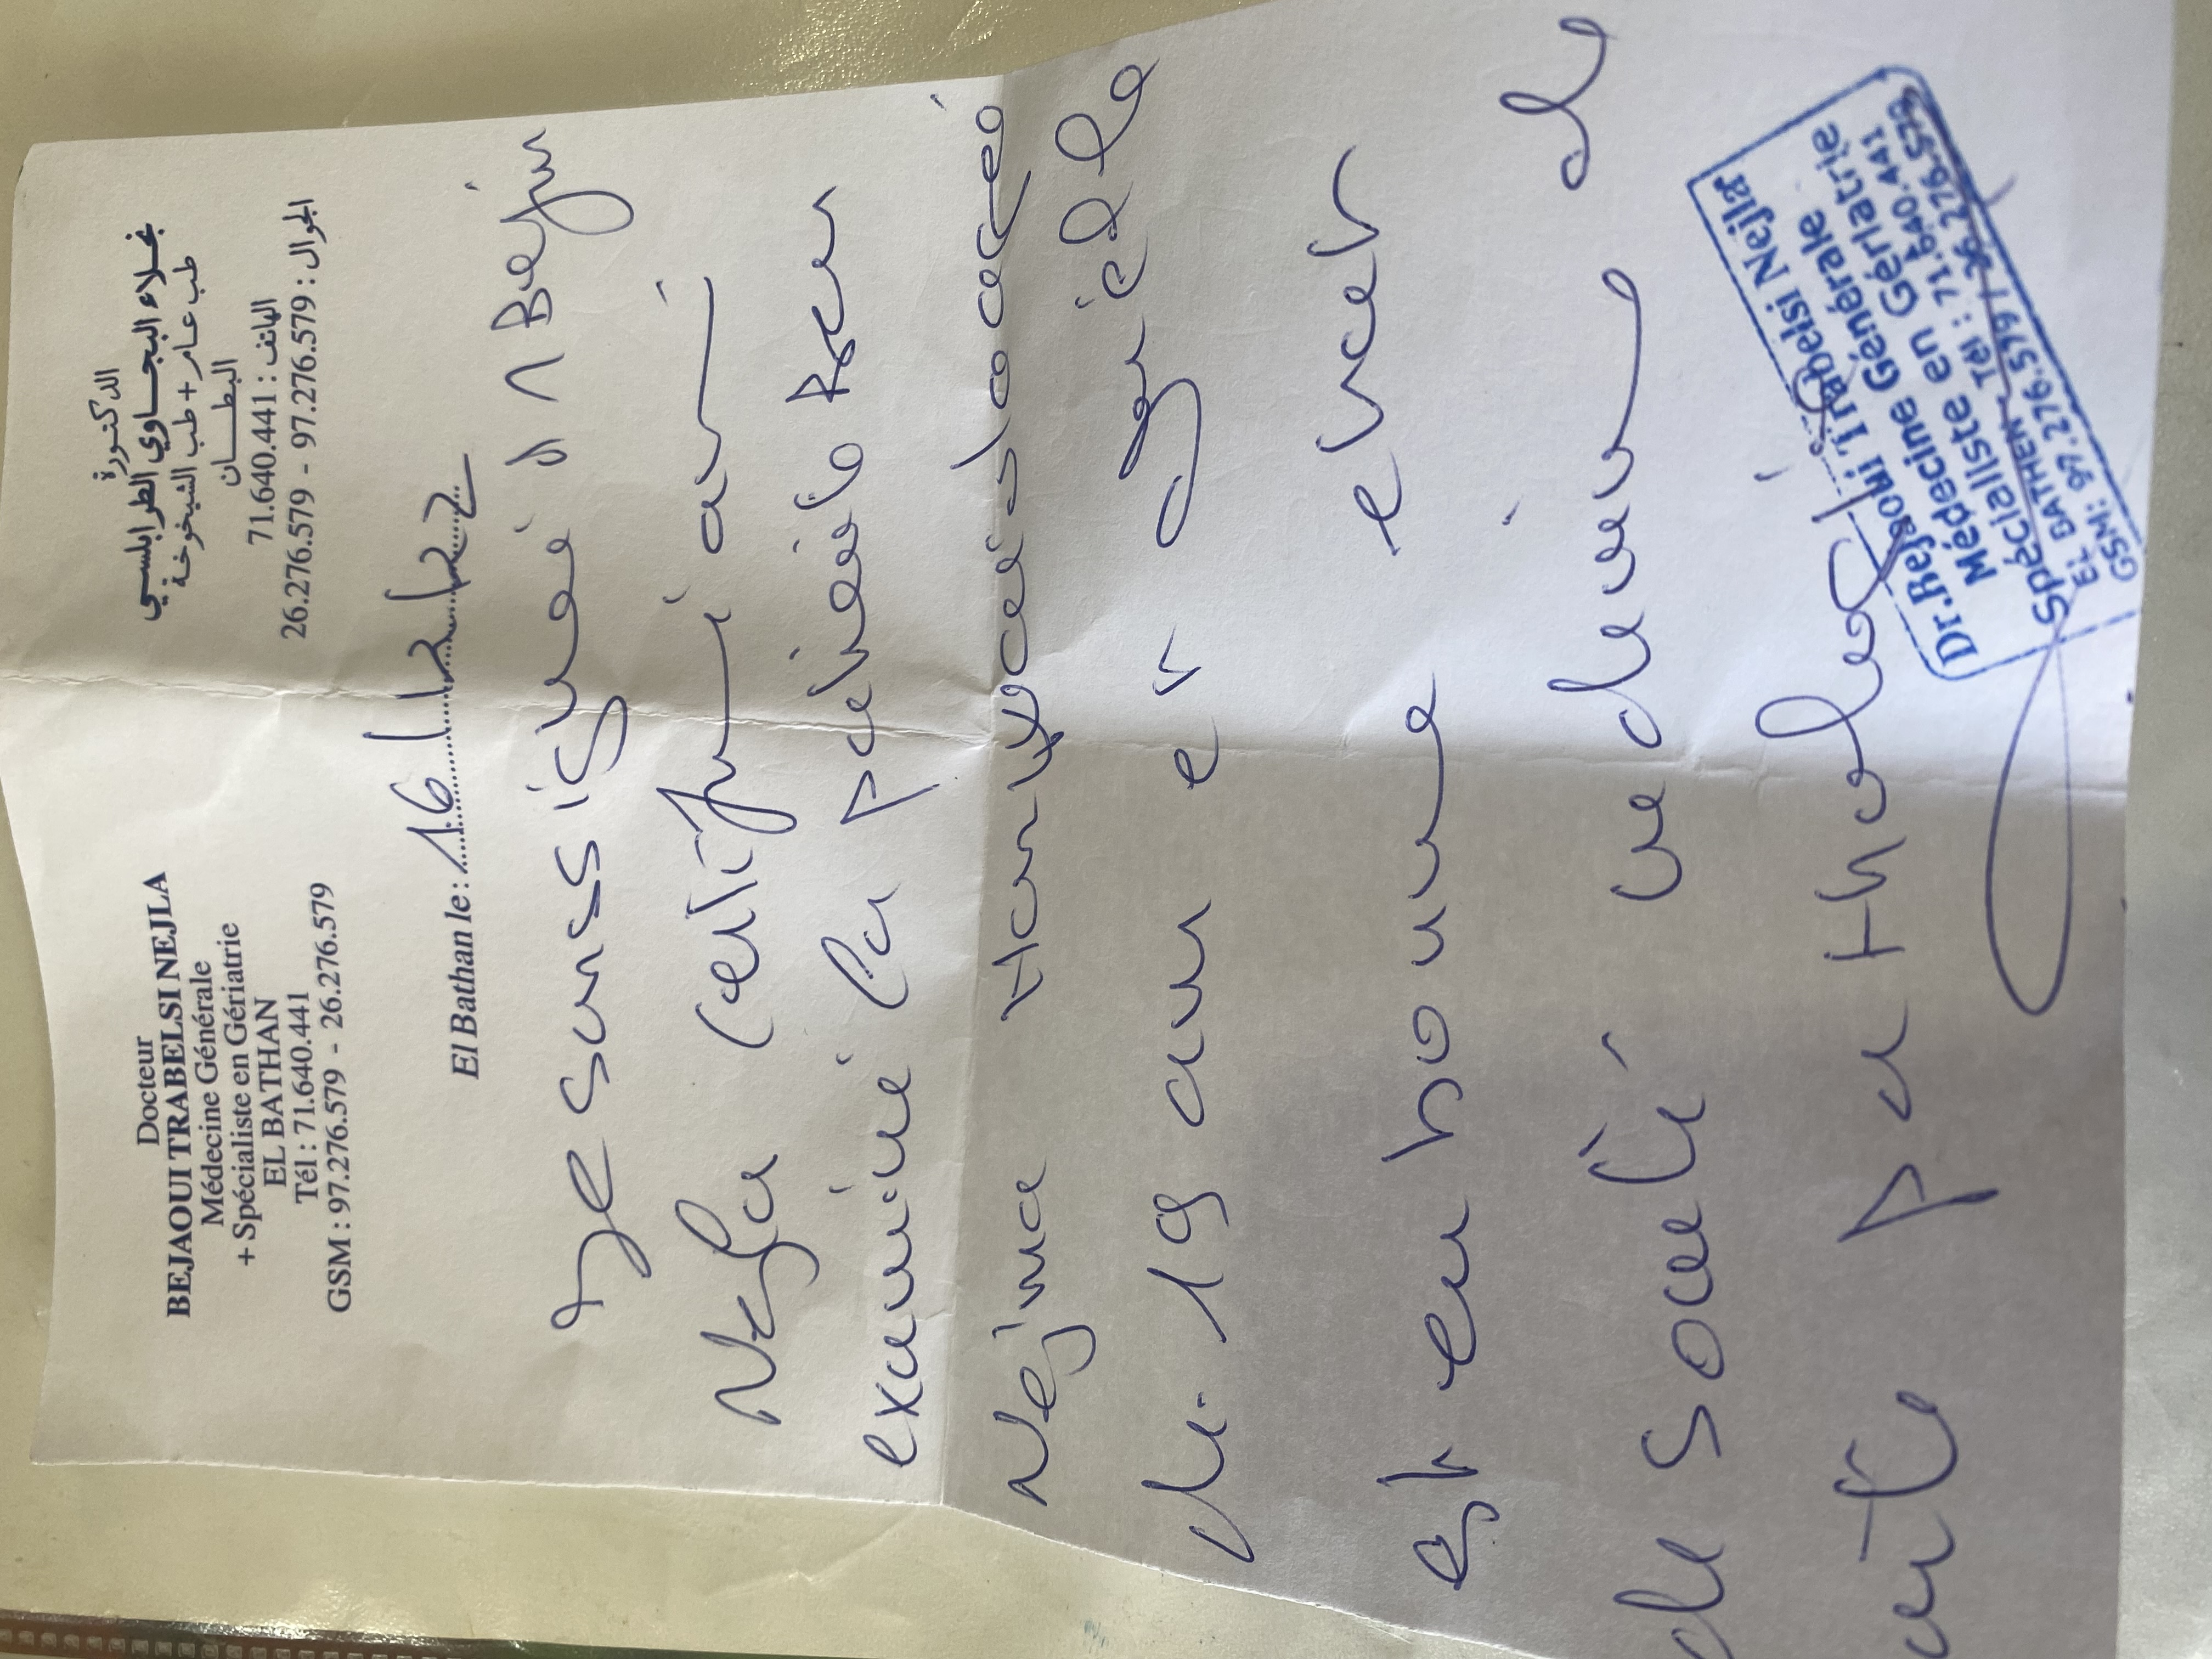 Docteur
BEJAOUI TRABELSI NEJLA
Médecine Générale
+ Spécialiste en Gériatrie
EL BATHAN
Tél : 71.640.441
GSM : 97.276.579 - 26.276.579
الدكتورة
نجلاء البجاوي الطرابلسي
طب عام + طب الشيخوخة
البطان
الهاتف : 71.640.441
الجوال : 97.276.579 - 26.276.579
El Bathan le : 16/12/22
Je soussigné Dr Beja
Nejla certifie avoir
examiné la patiente Ben
Nejma
de 19 ans et qu'elle
est en bonne etat
de santé
pathologie
Dr.Bejaoui Trabelsi Nejla
Médecine Générale
Spécialiste en Gériatrie
EL BATHEN - Tél : 71.640.441
GSM: 97.276.579 / 26.276.579